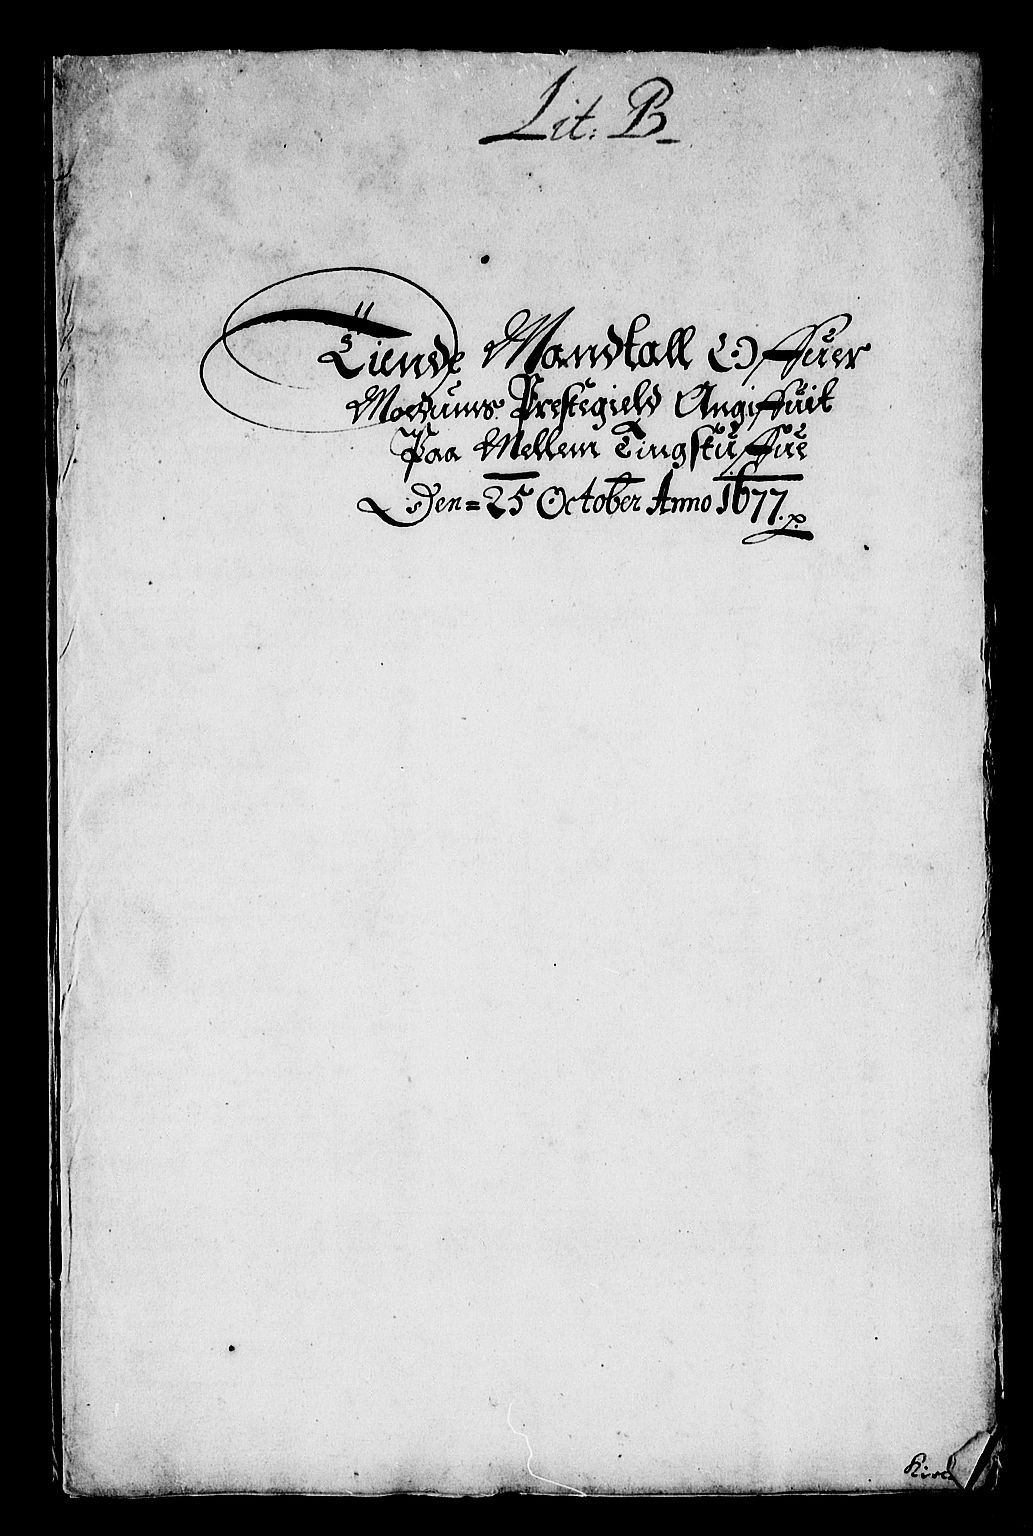 Lit: B
Tiende Mandtall Offuer
Modums Prestegield Angiffuit
Paa Mellem Tingstuffue
Den = 25 October Anno 1677